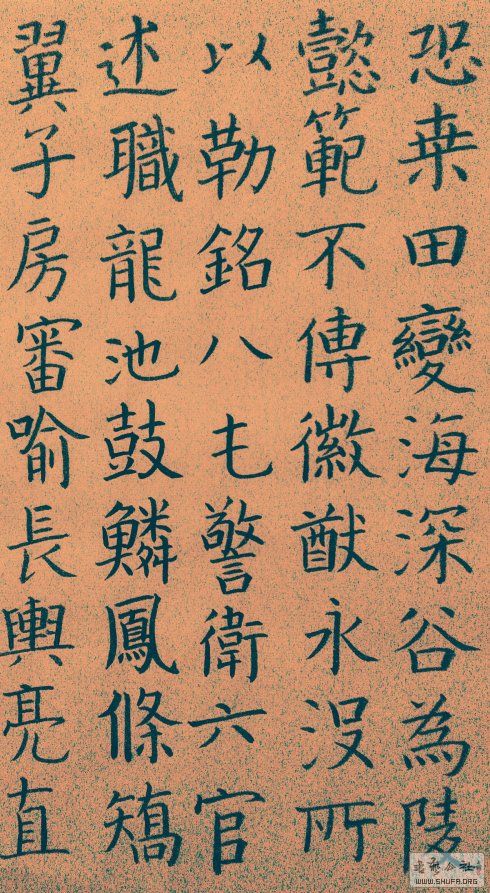 恐桒田變海深谷為陵
懿範不傳徽猷永没所
以勒銘八乇警衛六官
述職龍池鼓鱗鳳條矯
翼子房審喻長輿亮直
WWW.SHUFA.ORG